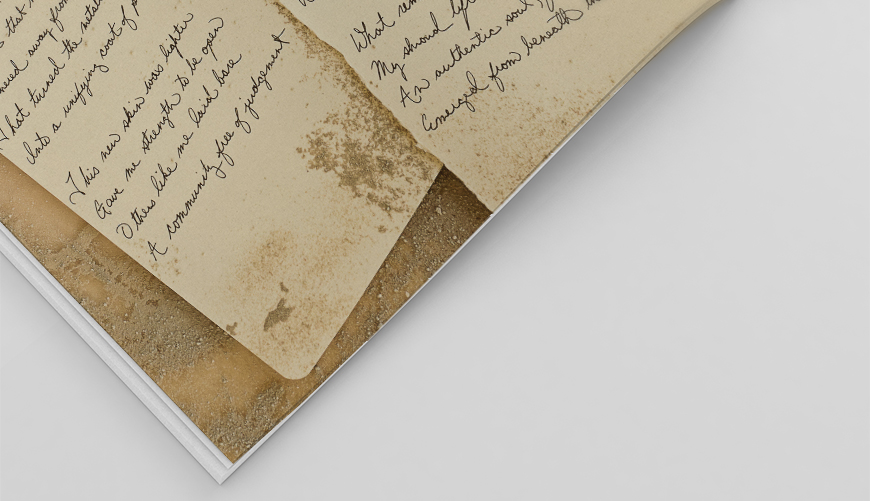 that
away from
that turned the
Into a unifying coat of
This new skin was lighter
Gave me strength to be open
Others like me laid bare
A community free of judgement
What
My shroud
An authentic soul,
Emerged from beneath